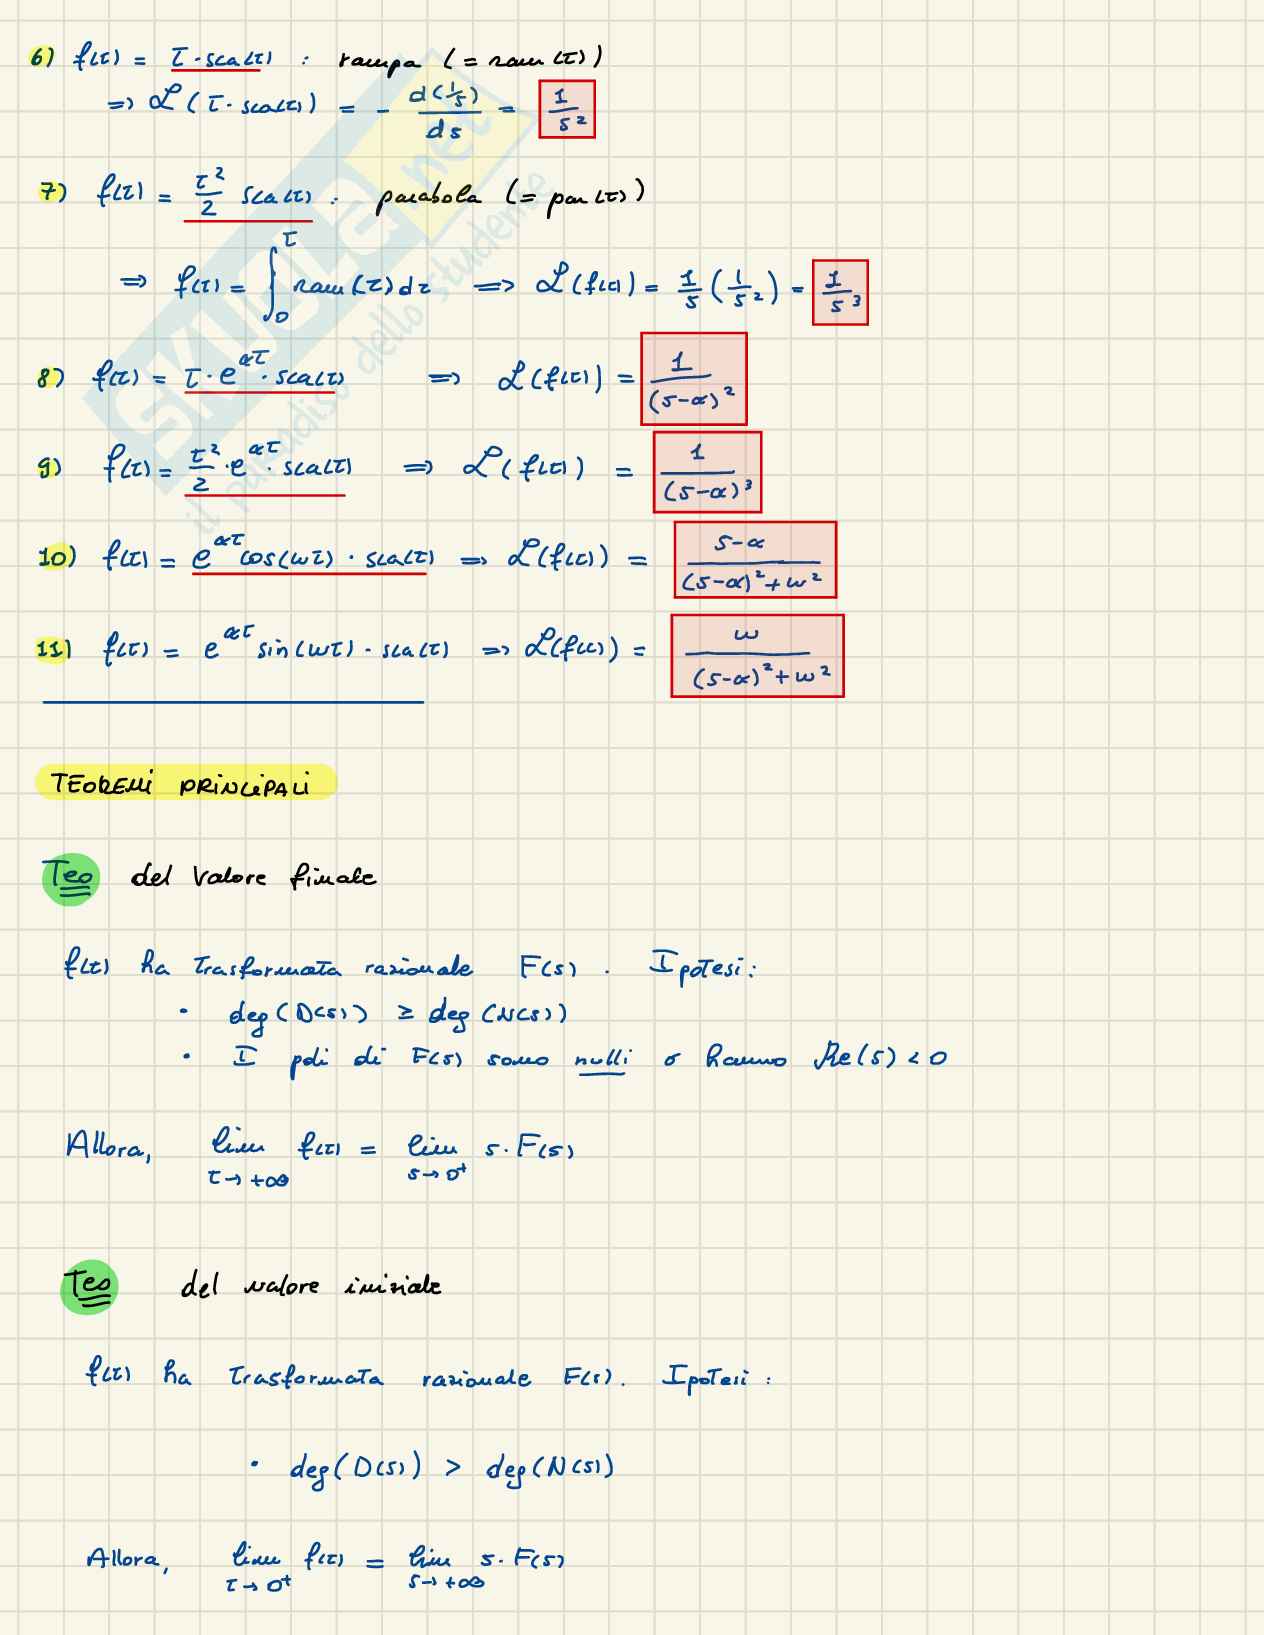 6) f(t) = t · sca(t) : rampa (= ram(t))
⇒ ℒ(t · sca(t)) = - d(1/s)/ds = 1/s²
7) f(t) = t²/2 sca(t) : parabola (= par(t))
⇒ f(t) = ∫₀ᵗ ram(τ)dτ ⇒ ℒ(f(t)) = 1/s (1/s²) = 1/s³
8) f(t) = t · e^{αt} · sca(t) ⇒ ℒ(f(t)) = 1/(s-α)²
9) f(t) = t²/2 · e^{αt} · sca(t) ⇒ ℒ(f(t)) = 1/(s-α)³
10) f(t) = e^{αt} cos(ωt) · sca(t) ⇒ ℒ(f(t)) = (s-α)/((s-α)²+ω²)
11) f(t) = e^{αt} sin(ωt) · sca(t) ⇒ ℒ(f(t)) = ω/((s-α)²+ω²)
TEOREMI PRINCIPALI
Teo del valore finale
f(t) ha trasformata razionale F(s). Ipotesi:
• deg(D(s)) ≥ deg(N(s))
• I poli di F(s) sono nulli o hanno Re(s) < 0
Allora, lim_{t→+∞} f(t) = lim_{s→0⁺} s · F(s)
Teo del valore iniziale
f(t) ha trasformata razionale F(s). Ipotesi:
• deg(D(s)) > deg(N(s))
Allora, lim_{t→0⁺} f(t) = lim_{s→+∞} s · F(s)
SKUOLA.net
il paradiso dello studente